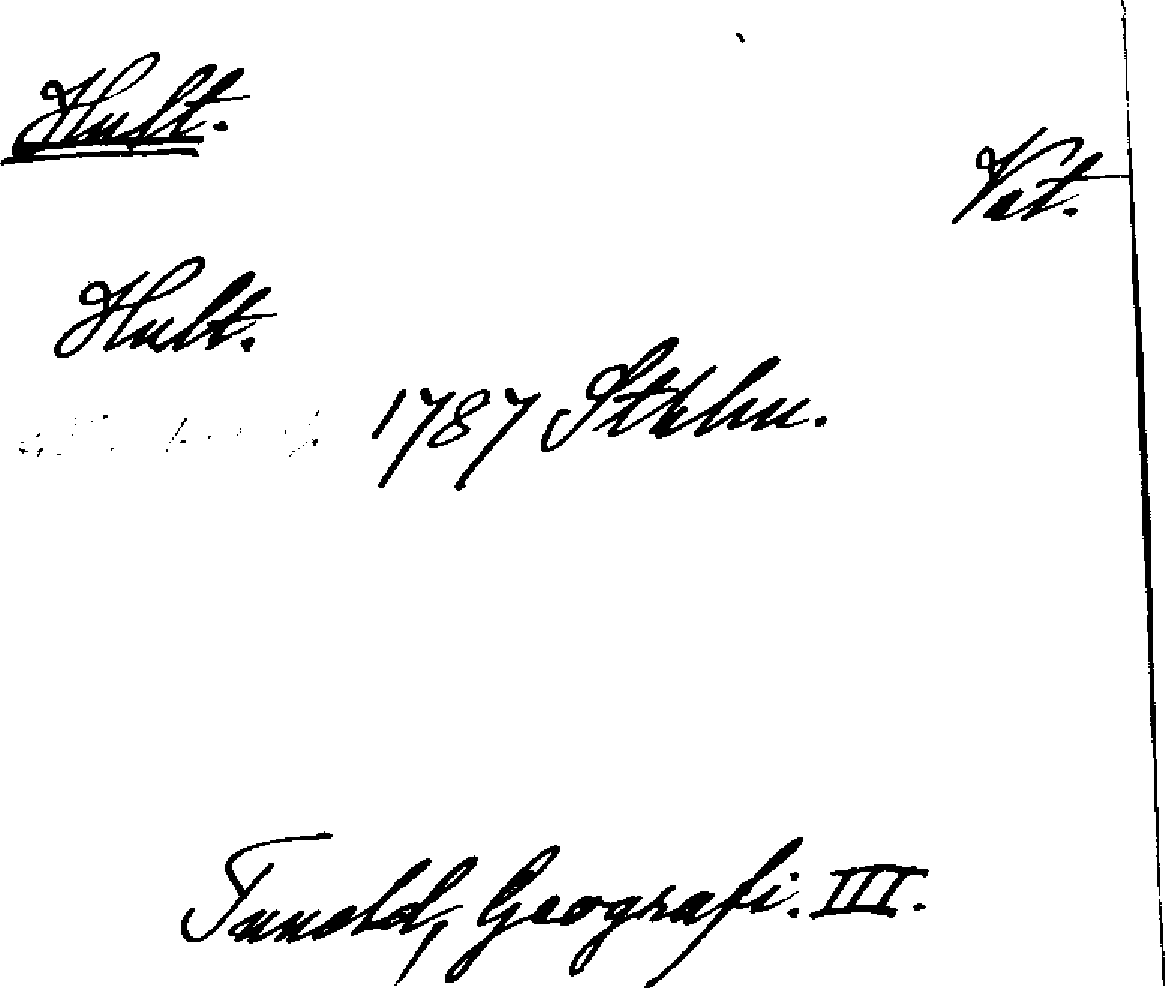 Hult.
Vat.
Hult.
1787 Sthlm.
Tunold, Geografi. III.